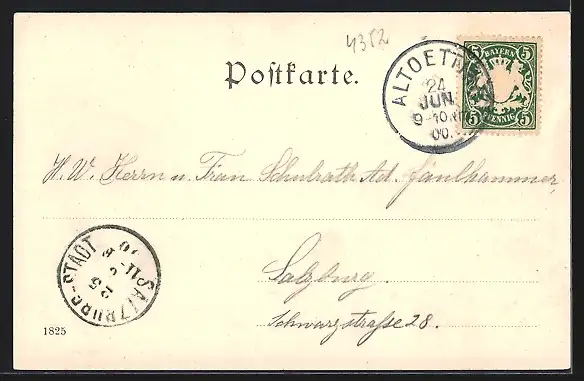 4352
Postkarte.
ALTOETTING
24
JUN.
9-10
00.
5 BAYERN 5
5 PFENNIG 5
H. W. Herrn u. Frau Schulrath Ad. Faulhammer,
SALZBURG-STADT
25
Salzburg.
Schwarzstrasse 28.
1825